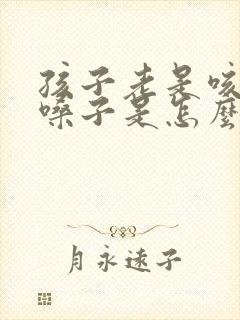 孩子老是咳
嗓子是怎麼
月永遠子